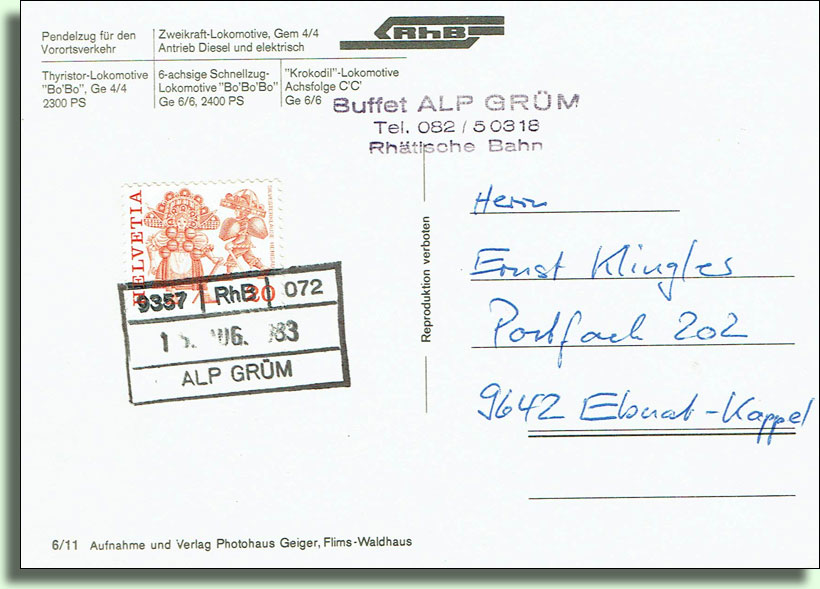 Pendelzug für den
Vorortsverkehr
Zweikraft-Lokomotive, Gem 4/4
Antrieb Diesel und elektrisch
Thyristor-Lokomotive
"Bo'Bo", Ge 4/4
2300 PS
6-achsige Schnellzug-
Lokomotive "Bo'Bo'Bo"
Ge 6/6, 2400 PS
"Krokodil"-Lokomotive
Achsfolge C'C'
Ge 6/6
RhB
Buffet ALP GRÜM
Tel. 082 / 50318
Rhätische Bahn
HELVETIA
20
9357 RhB 072
ALP GRÜM
Reproduktion verboten
Herrn
Ernst Klingler
Postfach 202
9642 Ebnat-Kappel
6/11 Aufnahme und Verlag Photohaus Geiger, Flims-Waldhaus